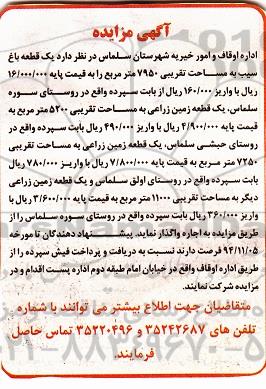 آگهی مزایده
اداره اوقاف و امور خیریه شهرستان سلماس در نظر دارد یک قطعه باغ
سیب به مساحت تقریبی ۷۹۵۰ متر مربع را به قیمت پایه ۱۶/۰۰۰/۰۰۰
ریال با واریز ۱۶۰/۰۰۰ ریال از بابت سپرده واقع در روستای سوره
سلماس، یک قطعه زمین زراعی به مساحت تقریبی ۵۲۰۰ متر مربع به
قیمت پایه ۴/۹۰۰/۰۰۰ ریال با واریز ۴۹۰/۰۰۰ ریال بابت سپرده واقع در
روستای حبشی سلماس، یک قطعه زمین زراعی به مساحت تقریبی
۷۲۵۰ متر مربع به قیمت پایه ۷/۸۰۰/۰۰۰ ریال با واریز ۷۸۰/۰۰۰ ریال
بابت سپرده واقع در روستای اولق سلماس و یک قطعه زمین زراعی
دیگر به مساحت تقریبی ۱۱۰۰۰ متر مربع به قیمت پایه ۳/۶۰۰/۰۰۰ ریال با
واریز ۳۶۰/۰۰۰ ریال بابت سپرده واقع در روستای سوره سلماس را از
طریق مزایده به اجاره واگذار نماید. پیشنهاد دهندگان تا مورخه
۹۴/۱۱/۰۵ فرصت دارند نسبت به دریافت و پرداخت فیش سپرده را از
طریق اداره اوقاف واقع در خیابان امام طبقه دوم اداره پست اقدام و در
مزایده شرکت نمایند.
متقاضیان جهت اطلاع بیشتر می توانند با شماره
تلفن های ۳۵۲۴۲۶۸۷ و ۳۵۲۲۰۴۹۶ تماس حاصل
فرمایند.